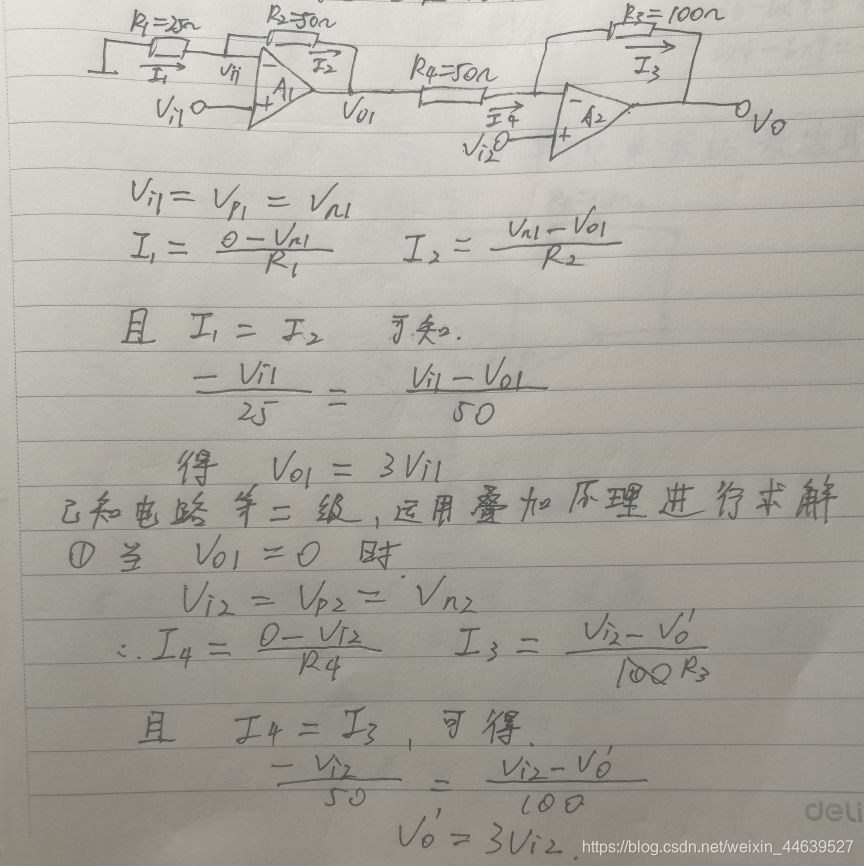 R₁=25Ω R₂=50Ω R₃=100Ω
I₁ Vi1 I₂ R₄=50Ω I₃
Vi1 − + A₁ V01 I₄ − + A₂ V0
Vi2
Vi1 = Vp1 = Vn1
I₁ = (0 − Vn1)/R₁ I₂ = (Vn1 − V01)/R₂
且 I₁ = I₂ 可知.
− Vi1/25 = (Vi1 − V01)/50
得 V01 = 3Vi1
已知电路第二级,运用叠加原理进行求解
① 当 V01 = 0 时
Vi2 = Vp2 = Vn2
∴ I₄ = (0 − Vi2)/R4 I₃ = (Vi2 − V0′)/R₃
且 I₄ = I₃ , 可得.
− Vi2/50 = (Vi2 − V0′)/100
V0′ = 3Vi2.
deli
https://blog.csdn.net/weixin_44639527